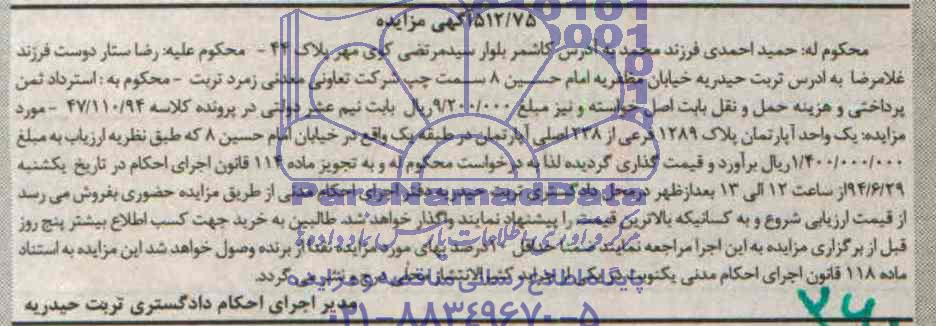 ۵۱۲/۷۵ آگهی مزایده
محکوم له: حمید احمدی فرزند محمد به آدرس کاشمر بلوار سیدمرتضی کوی مهر پلاک ۴۴ - محکوم علیه: رضا ستار دوست فرزند
غلامرضا به ادرس تربت حیدریه خیابان مظفریه امام حسین ۸ سمت چپ شرکت تعاونی معدنی زمرد تربت - محکوم به: استرداد ثمن
پرداختی و هزینه حمل و نقل بابت اصل خواسته و نیز مبلغ ۹/۲۰۰/۰۰۰ ریال بابت نیم عشر دولتی در پرونده کلاسه ۴۷/۱۱۰/۹۴ - مورد
مزایده: یک واحد آپارتمان پلاک ۱۲۸۹ فرعی از ۲۳۸ اصلی آپارتمان در طبقه یک واقع در خیابان امام حسین ۸ که طبق نظریه ارزیاب به مبلغ
۱/۴۰۰/۰۰۰/۰۰۰ ریال برآورد و قیمت گذاری گردیده لذا به درخواست محکوم له و به تجویز ماده ۱۱۴ قانون اجرای احکام در تاریخ یکشنبه
۹۴/۶/۲۹ از ساعت ۱۲ الی ۱۳ بعدازظهر درمحل دادگستری تربت حیدریه دفتر اجرای احکام مدنی از طریق مزایده حضوری بفروش می رسد
از قیمت ارزیابی شروع و به کسانیکه بالاترین قیمت را پیشنهاد نمایند واگذار خواهد شد. طالبین به خرید جهت کسب اطلاع بیشتر پنج روز
قبل از برگزاری مزایده به این اجرا مراجعه نمایند ضمنا حداقل ۱۰ درصد بهای مورد مزایده نقدا از برنده وصول خواهد شد این مزایده به استناد
ماده ۱۱۸ قانون اجرای احکام مدنی یکنوبت در یکی از جراید کثیرالانتشار محلی درج و نشر می گردد.
مدیر اجرای احکام دادگستری تربت حیدریه
ParsNamadData
۰۲۱-۸۸۳۴۹۶۷۰-۵